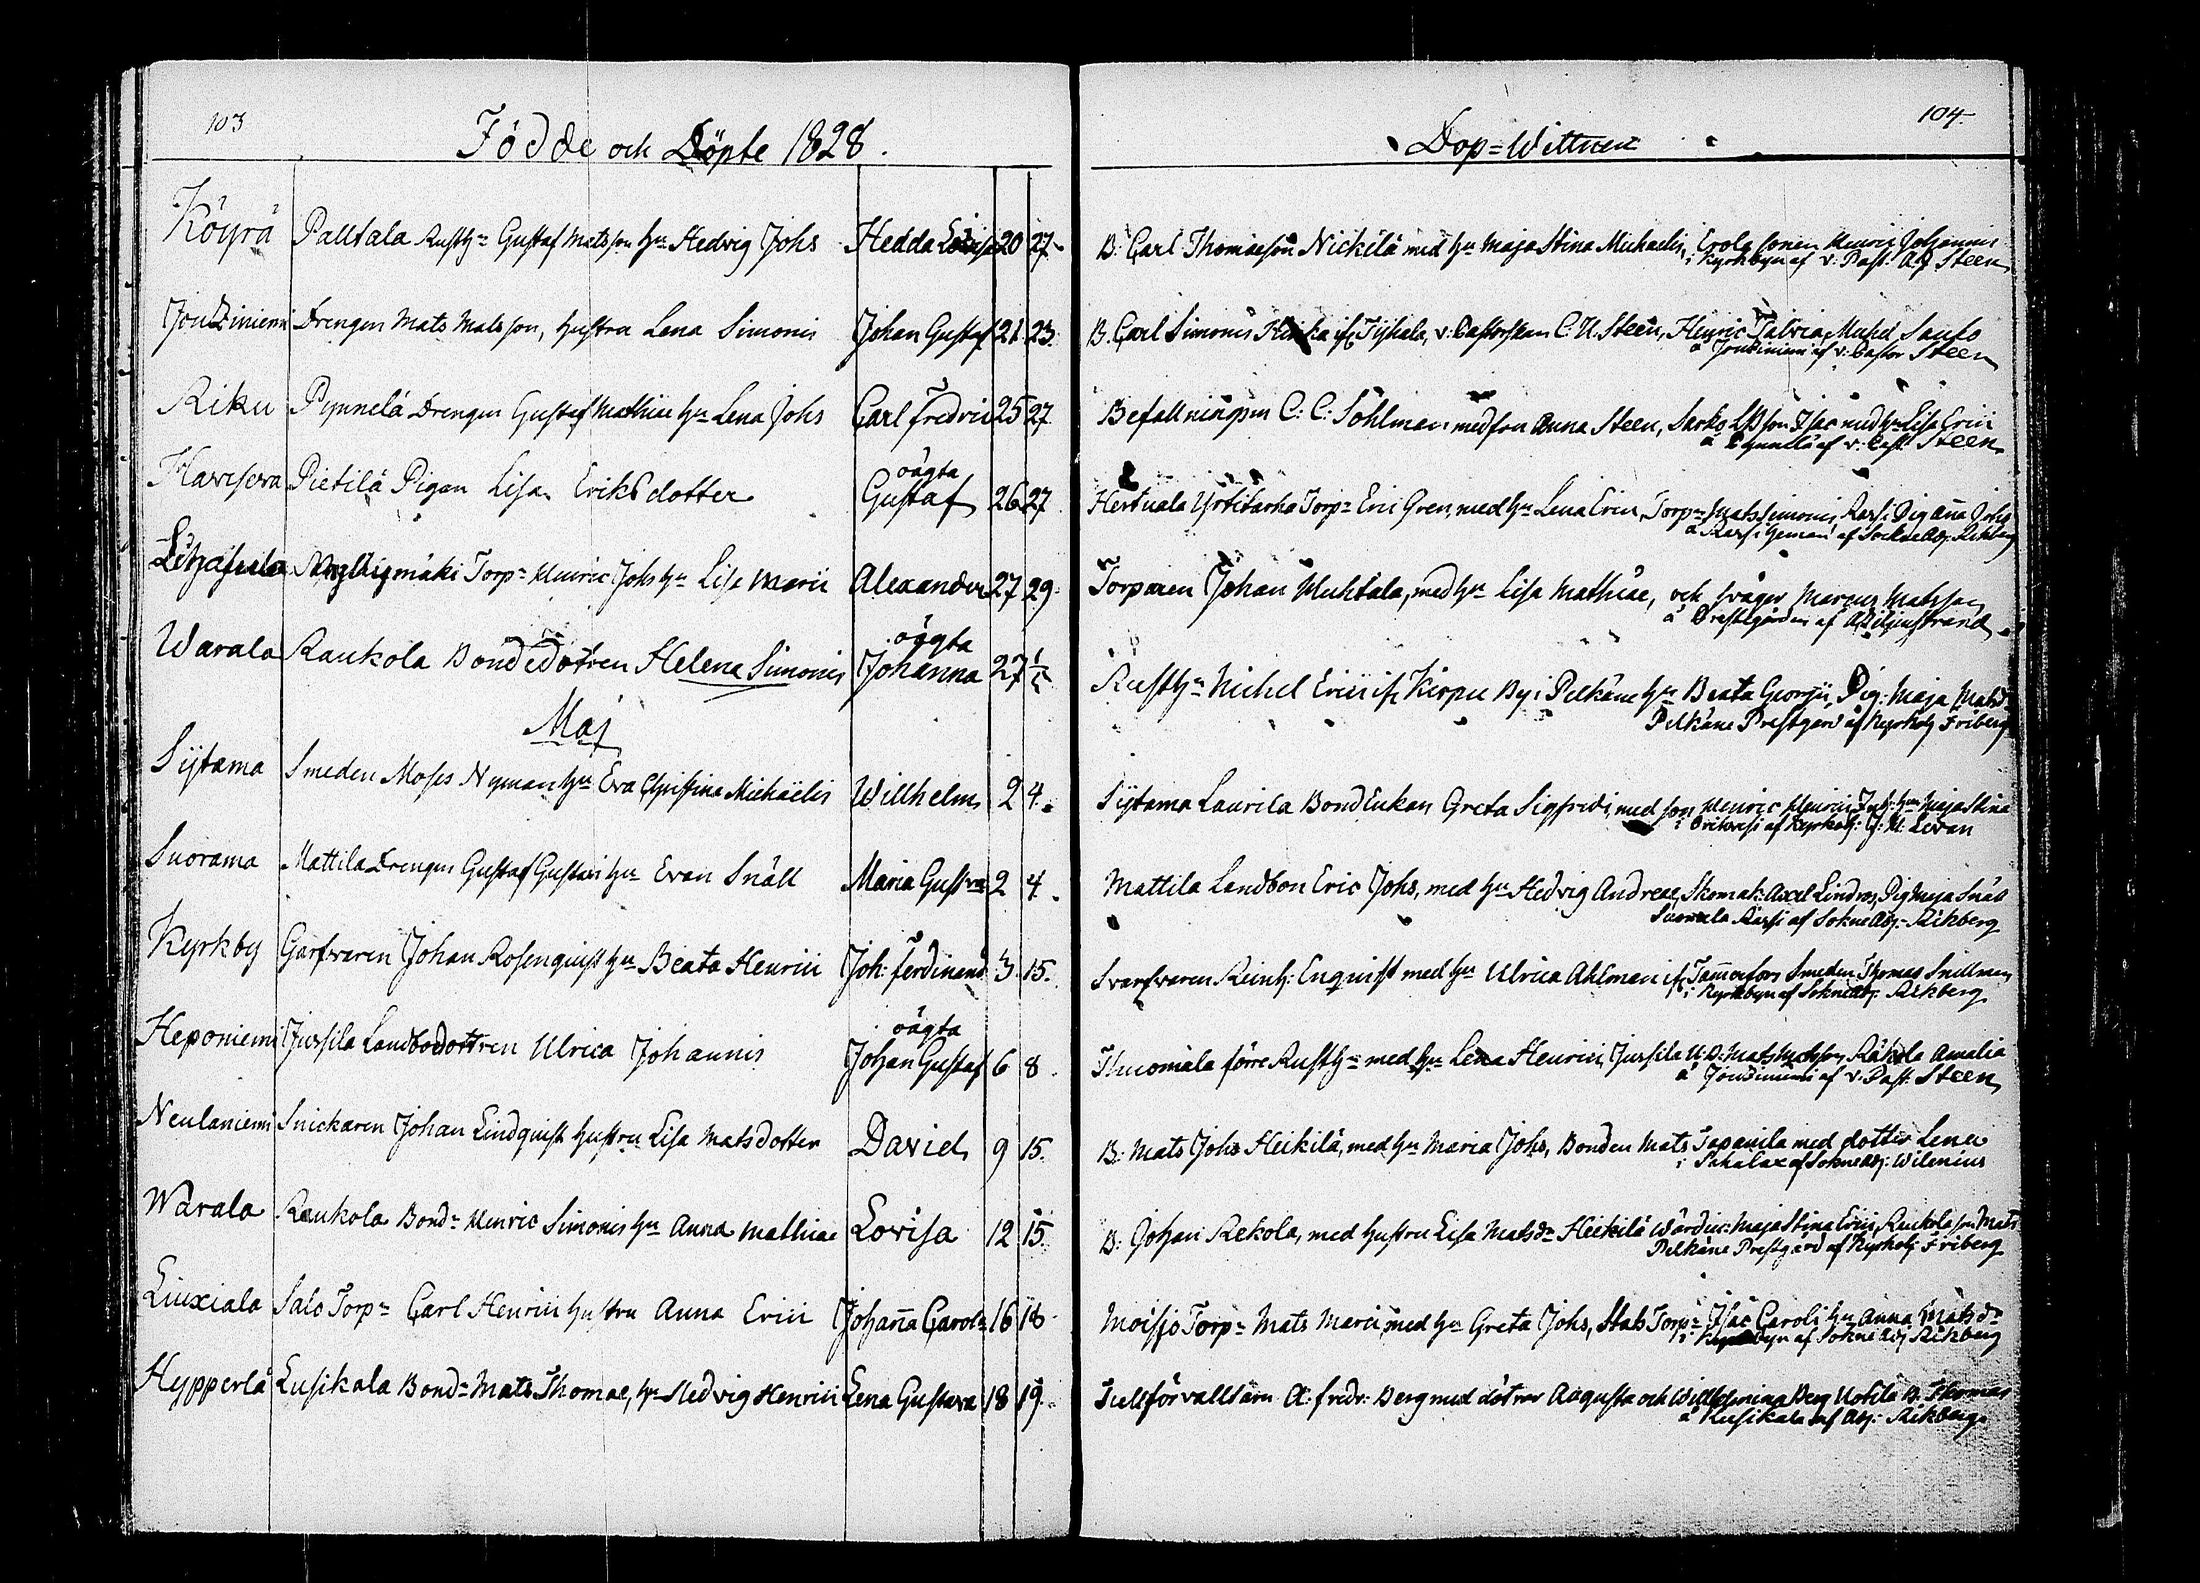 103
Födde och Döpte 1828.
Köyrä Palltala Rusth:n Gustaf Matsson h:n Hedvig Johs Hedda Lovisa 20 27
Joutziniemi Drengen Mats Matsson, hustru Lena Simonis Johan Gustaf 21 23.
Riku Pynnelä Drengen Gustaf Mathiæ h:u Lena Johs Carl Fredric 25 27
oägta
Pietilä Pigan Lisa Eriksdotter Gustaf 26 27
Torp:n Henric Johs h:u Lisa Marci Alexander 27 29.
oägta
Warala Raukola Bondedotren Helena Simonis Johanna 27 1/5
Maj
Sijtama Smeden Moses Nyman h:u Eva Christina Michaëlis Willhelm 2 4.
Suorama Mattila Drengen Gustaf Gustavi h:u Evan Snäll Maria Gustva 2 4.
Kyrkby Garfvaren Johan Rosenquist h:u Beata Henrici Joh: Ferdinand 3 15.
oägta
Heponiemi Jussila Landbodottren Ulrica Johannis Johan Gustaf 6 8.
Neulaniemi Snickaren Johan Lindquist hustru Lisa Matsdotter David 9 15.
Warala Raukola Bond:n Henric Simonis h:u Anna Mathiae Lovisa 12 15.
Liuxiala Salo Torp:n Carl Henrici hustru Anna Erici Johaña Carol:a 16 18
Hypperlä Lusikala Bond:n Mats Thomae, h:u Hedvig Henrici Lena Gustava 18 19.
104.
Dop=Wittnen
B: Carl Thomaeson Nickilä med h:u Maja Stina Michaelis, Erola sonen Henric Johannis
i Kyrkbyn af v: Past: Steen
B. Carl Simonis ifr Tijhala, v: Pastorskan C. U. Steen, Henric Talvia, Michel
å Joutziniemi af v: Pastor Steen
Befallningsm C: C: Sohlman med fru Anna Steen, son Isac med h:u Lisa Erici
å Pynnelä af v: Past: Steen
Hertuala Torp:n Eric Gren, med h:u Lena Erici, Torp:n Mats Simonis, Pig Aña Johs
af Sockne Adj. Rikberg
Torparen Johan Huhtala, med h:u Lisa Mathiae, och svåger Marcus Matsson
å Prestgården af A. Liljenstrand
Rusth:n Michel Erici ifr Kirpu By i Pelkäne h:u Beata Georgii, Pig: Maja Matsd:r
Pelkäne Prestgård af Kyrkohj Friberg
Sijtama Laurila Bond Enkan Greta Sigfredi, med son Henric Henrici h:u Maja Stina
i Orihvesi af Kyrkohj: G: M: Levan
Mattila Landbon Eric Johs, med h:u Hedvig Andreae, Skomak: Axel Lindros, Pig Maja Snäll
af Sokne Adj: Rikberg
Svarfvaren Reinh: Enquist med h:u Ulrica Ahlman ifr Tamerfors Smeden Thomas Snillman
i Kyrkbyn af Sokne Adj: Rikberg
Thuomala förre Rusth:n med h:u Lena Henrici, Jussila U: D: Mats Matsson, Räkola Amalia
å Joutziniemi af v: Past: Steen
B: Mats Johs Heikilä, med h:u Maria Johs, Bonden Mats Tapanila med dotter Lena
i Sahalax af Sokne Adj: Wilenius
B: Johan Rekola, med hustru Lisa Matsd:r Heikilä Wärdin: Maja Stina Erici, Raukola son Mats
Pelkäne Prestgård af Kyrkohj Friberg
Moisjo Torp:n Mats Marci, med h:u Greta Johs, Torp:n Isac Caroli h:u Anna Matsd:r
i Kyrkbyn af Sokne Adj. Rikberg
Tullförvalltarn A: Fredr: Berg med dötrar Augusta och Willhelmina Berg Uotila B: Thomas
å Lusikala af Adj: Rikberg